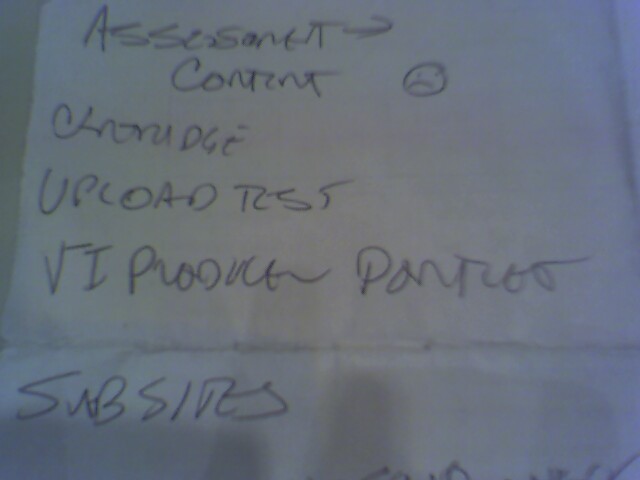 ASSESSMENT →
CONTENT ☹
CARTRIDGE
UPLOAD TEST
VI PRODUCER PORTLET
SUBSITES